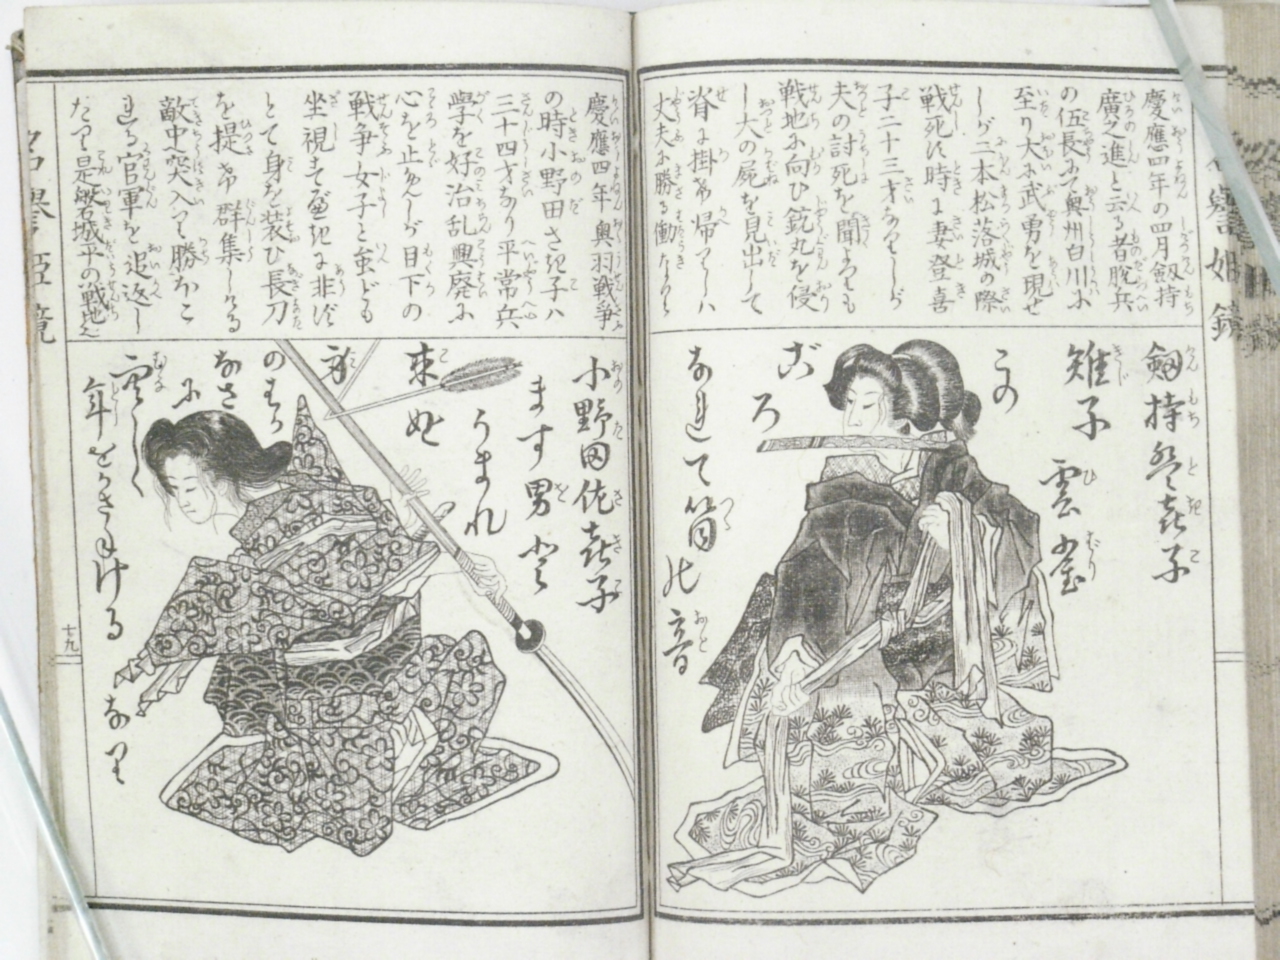 慶應四年の四月劔持
廣之進と云る者脱兵
の伍長にて奥州白川に
至り大に武勇を現せ
しが三本松落城の際
戦死す時に妻登喜
子二十三才なりしが
夫の討死を聞よりも
戦地に向ひ銃丸を侵
し夫の屍を見出して
脊に掛け帰りしハ
丈夫に勝る働なりし
劔持登喜子
雉子雲雀
この
ごろ
なれて
筒の音
慶應四年奥羽戦争
の時小野田さき子ハ
三十四才なり平常兵
學を好治乱興廃に
心を止めしが目下の
戦争女子と虽ども
坐視すべきに非ず
とて身を装ひ長刀
を提げ群集しける
敵中へ突入つて勝ほこ
れる官軍を追返し
たり是磐城平の戦地也
小野田佐喜子
ます男と
うまれ
来ぬ
のち
なさ
に
空しく
年をかさねける
なり
名誉姫鏡
七九